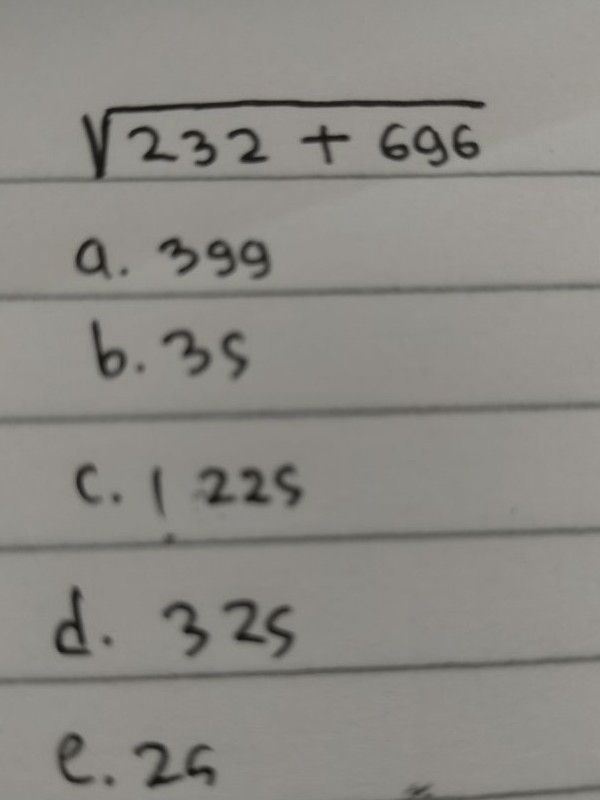 √232 + 696
a. 399
b. 35
c. 1.225
d. 325
e. 25